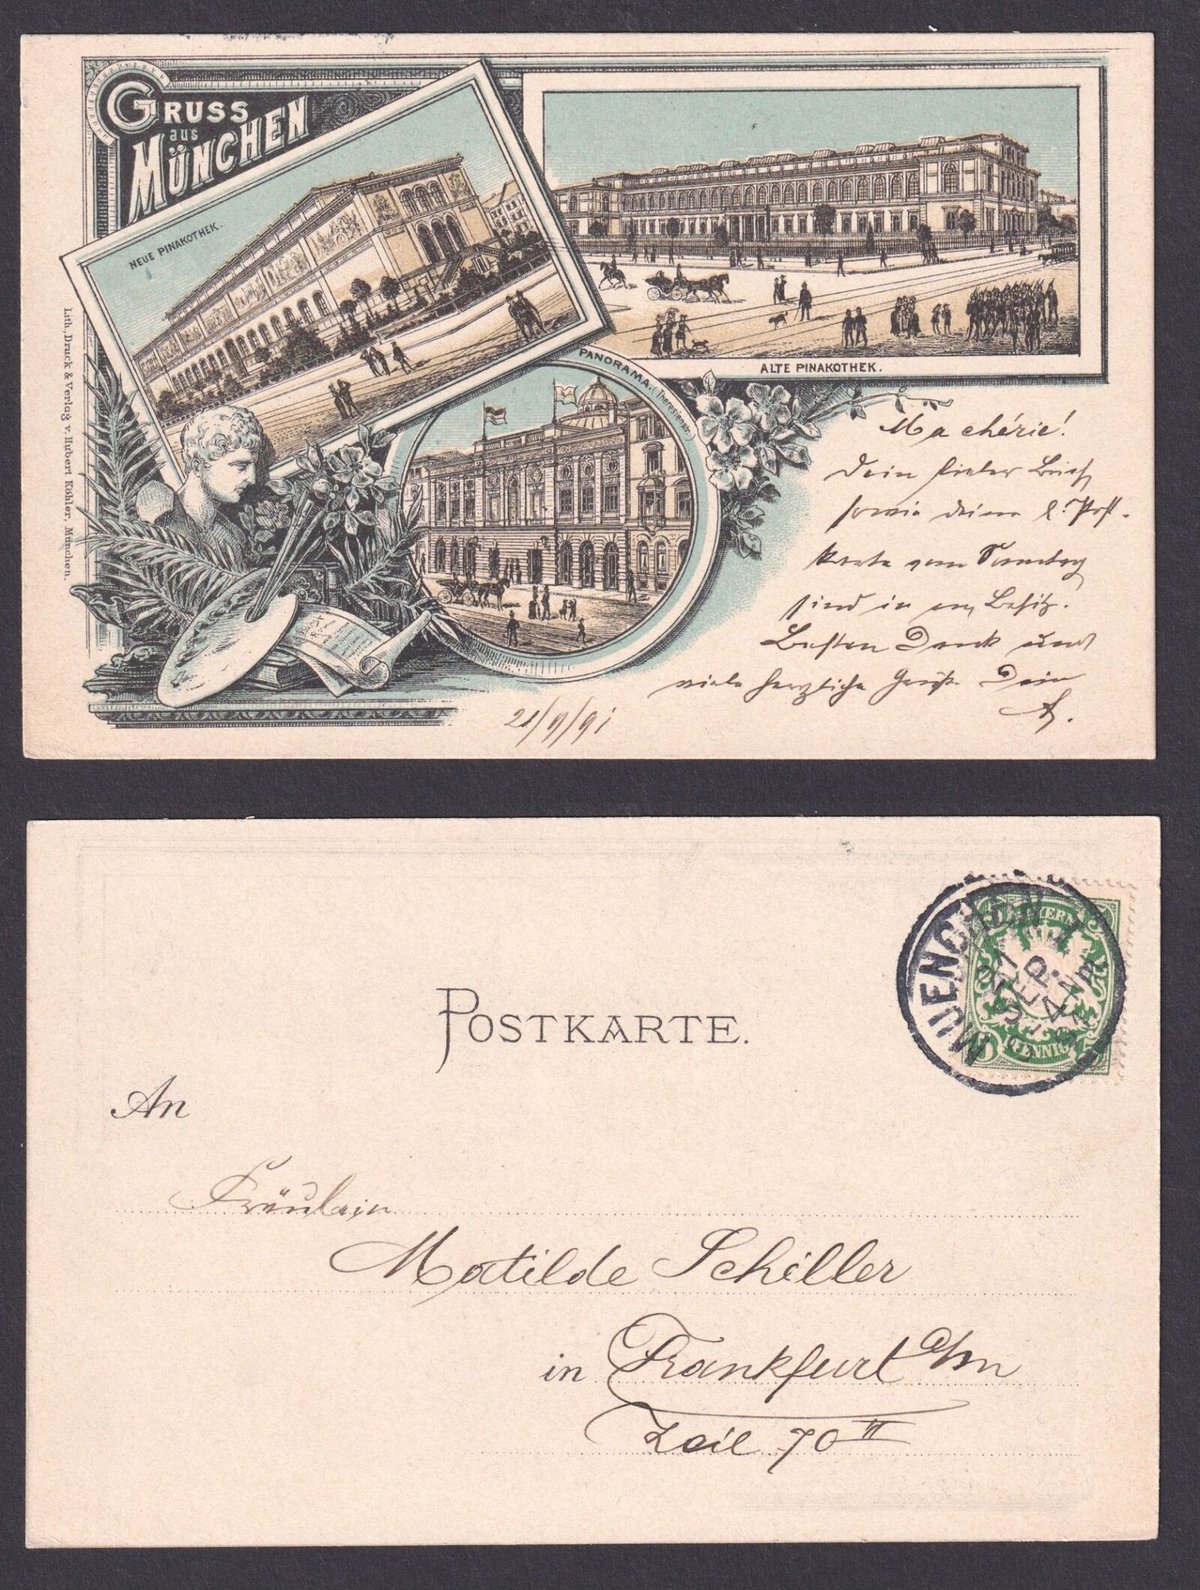 GRUSS
aus
MÜNCHEN
NEUE PINAKOTHEK.
ALTE PINAKOTHEK.
PANORAMA (Theresienstr.)
Lith. Druck & Verlag v. Hubert Köhler, München.
Ma chérie!
Dein lieber Brief
sowie deine l. Post-
karte vom
sind in m. Besitz.
Besten Dank und
viele herzliche Grüße Dein
A.
21/9/91
POSTKARTE.
An
Fräulein
Matilde Schiller
in Frankfurt a/m
Zeil 70 II
MUENCHEN I
21
SEP.
4-5 Nm
91
BAYERN
5
PFENNIG